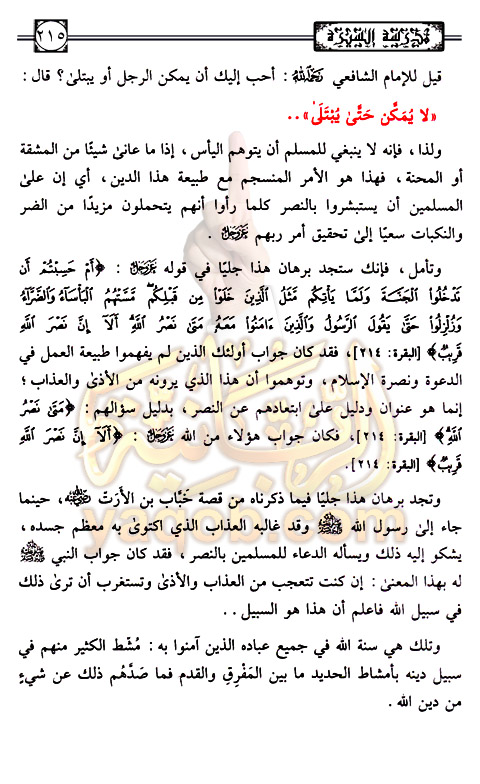 مدرسة السيرة
٢١٥
قيل للإمام الشافعي رَحِمَهُ اللهُ : أحب إليك أن يمكن الرجل أو يبتلىٰ؟ قال :
«لا يُمَكَّن حَتَّىٰ يُبْتَلَىٰ» . .
ولذا ، فإنه لا ينبغي للمسلم أن يتوهم اليأس ، إذا ما عانىٰ شيئًا من المشقة
أو المحنة ، فهذا هو الأمر المنسجم مع طبيعة هذا الدين ، أي إن علىٰ
المسلمين أن يستبشروا بالنصر كلما رأوا أنهم يتحملون مزيدًا من الضر
والنكبات سعيًا إلىٰ تحقيق أمر ربهم عَزَّوَجَلَّ .
وتأمل ، فإنك ستجد برهان هذا جليًا في قوله عَزَّوَجَلَّ : ﴿أَمْ حَسِبْتُمْ أَن
تَدْخُلُوا۟ ٱلْجَنَّةَ وَلَمَّا يَأْتِكُم مَّثَلُ ٱلَّذِينَ خَلَوْا۟ مِن قَبْلِكُم ۖ مَّسَّتْهُمُ ٱلْبَأْسَآءُ وَٱلضَّرَّآءُ
وَزُلْزِلُوا۟ حَتَّىٰ يَقُولَ ٱلرَّسُولُ وَٱلَّذِينَ ءَامَنُوا۟ مَعَهُۥ مَتَىٰ نَصْرُ ٱللَّهِ ۗ أَلَآ إِنَّ نَصْرَ ٱللَّهِ
قَرِيبٌ﴾ [البقرة: ٢١٤] ، فقد كان جواب أولئك الذين لم يفهموا طبيعة العمل في
الدعوة ونصرة الإسلام ، وتوهموا أن هذا الذي يرونه من الأذىٰ والعذاب ؛
إنما هو عنوان ودليل علىٰ ابتعادهم عن النصر ، بدليل سؤالهم : ﴿مَتَىٰ نَصْرُ
ٱللَّهِ﴾ [البقرة: ٢١٤] ، فكان جواب هؤلاء من الله عَزَّوَجَلَّ : ﴿أَلَآ إِنَّ نَصْرَ ٱللَّهِ
قَرِيبٌ﴾ [البقرة: ٢١٤] .
وتجد برهان هذا جليًا فيما ذكرناه من قصة خَبَّاب بن الأَرَتّ رَضِيَ اللهُ عَنْهُ ، حينما
جاء إلىٰ رسول الله ﷺ وقد غالبه العذاب الذي اكتوىٰ به معظم جسده ،
يشكو إليه ذلك ويسأله الدعاء للمسلمين بالنصر ، فقد كان جواب النبي ﷺ
له بهذا المعنىٰ : إن كنت تتعجب من العذاب والأذىٰ وتستغرب أن ترىٰ ذلك
في سبيل الله فاعلم أن هذا هو السبيل . .
وتلك هي سنة الله في جميع عباده الذين آمنوا به : مُشّط الكثير منهم في
سبيل دينه بأمشاط الحديد ما بين المَفْرِقِ والقدم فما صَدَّهُم ذلك عن شيءٍ
من دين الله .
yaqob.com